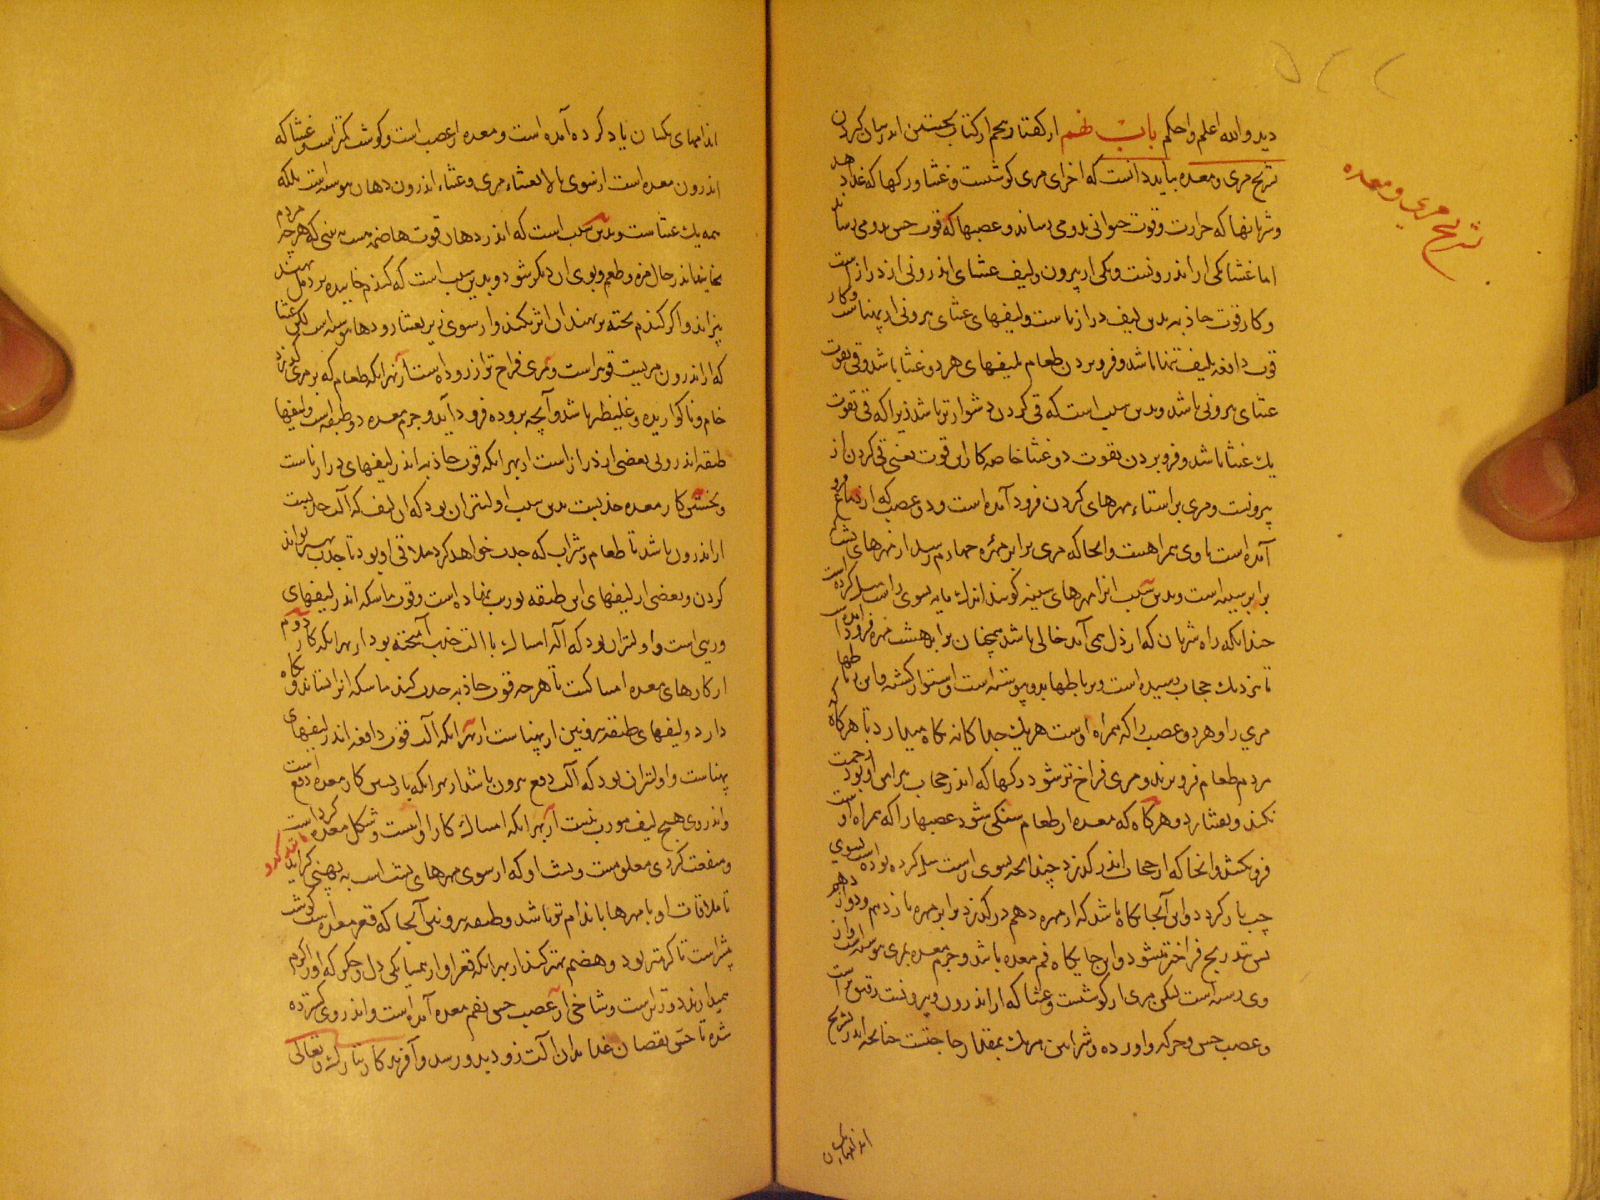 تشریح مری و معده
دید والله اعلم واحکم باب نهم از گفتار پنجم از کتاب نخستین اندر بیان کردن
تشریح مری و معده بباید دانست که اجزای مری گوشتست و غشا و رگها که غذا دهد
و شریانها که حرارت و قوت حیوانی بدو می رساند و عصبها که قوت حس بدو می رساند
اما غشا یکی از اندرونست و یکی از بیرون و لیف غشای اندرونی اندر درازاست
و کار قوت جاذبه بدین لیف درازناست و لیفهای غشای بیرونی از پهناست و کار
قوت دافعه بلیف پهنا باشد و فرو بردن طعام بلیفهای هر دو غشا باشد و قی بقوت
غشای بیرونی باشد و بدین سبب است که قی کردن دشوارتر باشد زیرا که قی بقوت
یک غشا باشد و فرو بردن بقوت دو غشا خاصه کار این قوت یعنی قی کردن از
بیرونست و مری بر استاء مهرهای گردن فرود آمده است و دو عصب که از دماغ فرود
آمده است با وی همراهست و انجا که مری برابر مهره چهارم رسد از مهرهای پشت
برابر سینه است و بدین سبب انرا مهرهای سینه گویند اندک مایه بسوی راست میل کرده است
چندانکه راه شریان که از دل همی آید خالی باشد همچنان برابر هشت مهره فرود آمده است
تا نزدیک حجاب رسیده است و برباطها بدو پیوسته است و استوار گشته و این رباطها
مری را و هر دو عصب را که همراه اوست هر یک جداگانه نگاه میدارد تا هرگاه که
مردم طعام فرو برند و مری فراخ تر شود رگها که اندر حجاب پیرامن او بود زحمت
نکند و نفشارد و هرگاه که معده از طعام سنگی شود عصبها را که همراه اوست
فرو نکشد و انجا که از حجاب اندر گذرد چندانچه بسوی راست میل کرده بوده است بسوی
چپ باز گردد و این آنجا گاه باشد که از مهره دهم در گذرد و برابر مهره یازدهم و دوازدهم
پس بتدریج فراختر میشود و این جایگاه فم معده باشد و جرم معده بمری پیوسته است و از
وی رسته است لیکن مری از گوشتست و غشا که از اندرون و بیرونست رقیق تر است
و عصب حس و حرکه و اورده و شرایین هر یک بمقدار حاجتست چنانچه اندر تشریح
اندامهای یکسان یاد کرده آمده است و معده از عصب است و گوشت کمتر است و غشا که
اندرون معده است از سوی بالا بغشاء مری و غشاء اندرون دهان پیوسته است بلکه
همه یک غشاست و بدین سبب است که اندر دهان قوت هاضمه هست نه بینی که هر چه مردم
بخایند اندر حال مزه و طعم و بوی ان دیگر شود و بدین سبب است که گندم خاییده بر دمل نهند
بپزاند و اگر گندم پخته بر نهند ان اثر نکند و از سوی زیر بغشاء رودها پیوسته است لکن غشا
که از اندرون مریست قوی تر است و مری فراخ تر از روده است از بهر انکه طعام که بر مری گذرد
خام و ناگواریده و غلیظ تر باشد و آنچه بروده فرود آید و جرم معده دو طبقه است و لیفهای
طبقه اندرونی بعضی از درازا است از بهر انکه قوت جاذبه اندر لیفهای درازناست
و نخستین کار معده جذبست بدین سبب اولیتر ان بود که ان لیف که آلت جذبست
از اندرون باشد تا طعام و شراب که جذب خواهد کرد ملاقی او بود تا جذب بهتر تواند
کردن و بعضی از لیفهای این طبقه بورب نهاده است و قوت ماسکه اندر لیفهای
وریبی است و اولیتر ان بود که آلة امساک با الت جذب آمیخته بود از بهر انکه کار دوم
از کارهای معده امساکست تا هر چه قوت جاذبه جذب کند ماسکه انرا بستاند و نگاه
دارد و لیفهای طبقه بیرونین از پهناست از بهر انکه آلت قوت دافعه اندر لیفهای
پهناست و اولیتر ان بود که آلت دفع بیرون باشد از بهر انکه باز پسین کار معده دفع است
و اندر وی هیچ لیف مورب نیست از بهر انکه امساک کار او نیست و شکل معده گرد است
و منفعت گردی معلومست و پشت او که از سوی مهرهای پشت است به پهنی گراید
تا ملاقات او با مهرها باندام تر باشد و طبقه بیرونین آنجا که قعر معده است گوشت
بیشتر است تا گرمتر بود و هضم بهتر کند از بهر انکه قعر او از همسایگی دل و جگر که او را گرم
میدارند دورتر است و شاخی از عصب حس بفم معده آمده است و اندر وی گسترده
شده تا حس نقصان غذا بدان آلت زود بدو رسد و آفریدگار تبارک و تعالی